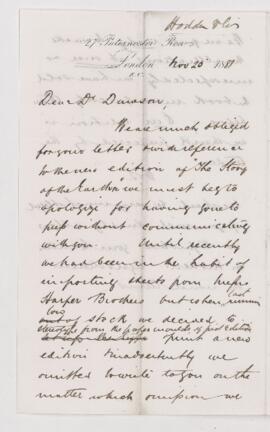 Hodder & Co
27 Paternoster Row
London Nov 25 1881
E.C.
Dear Dr Dawson,
We are much obliged
for your letter with reference
to the new edition of The Story
of the Earth we must beg to
apologize for having gone to
press without communicating
with you. Until recently
we had been in the habit of
importing sheets from Messrs
Harper Brothers but when last running
low
out of stock we decided to
stereotype from the paper moulds of first edition
print a new
edition Inadvertently we
omitted to write to you on the
matter which omission we